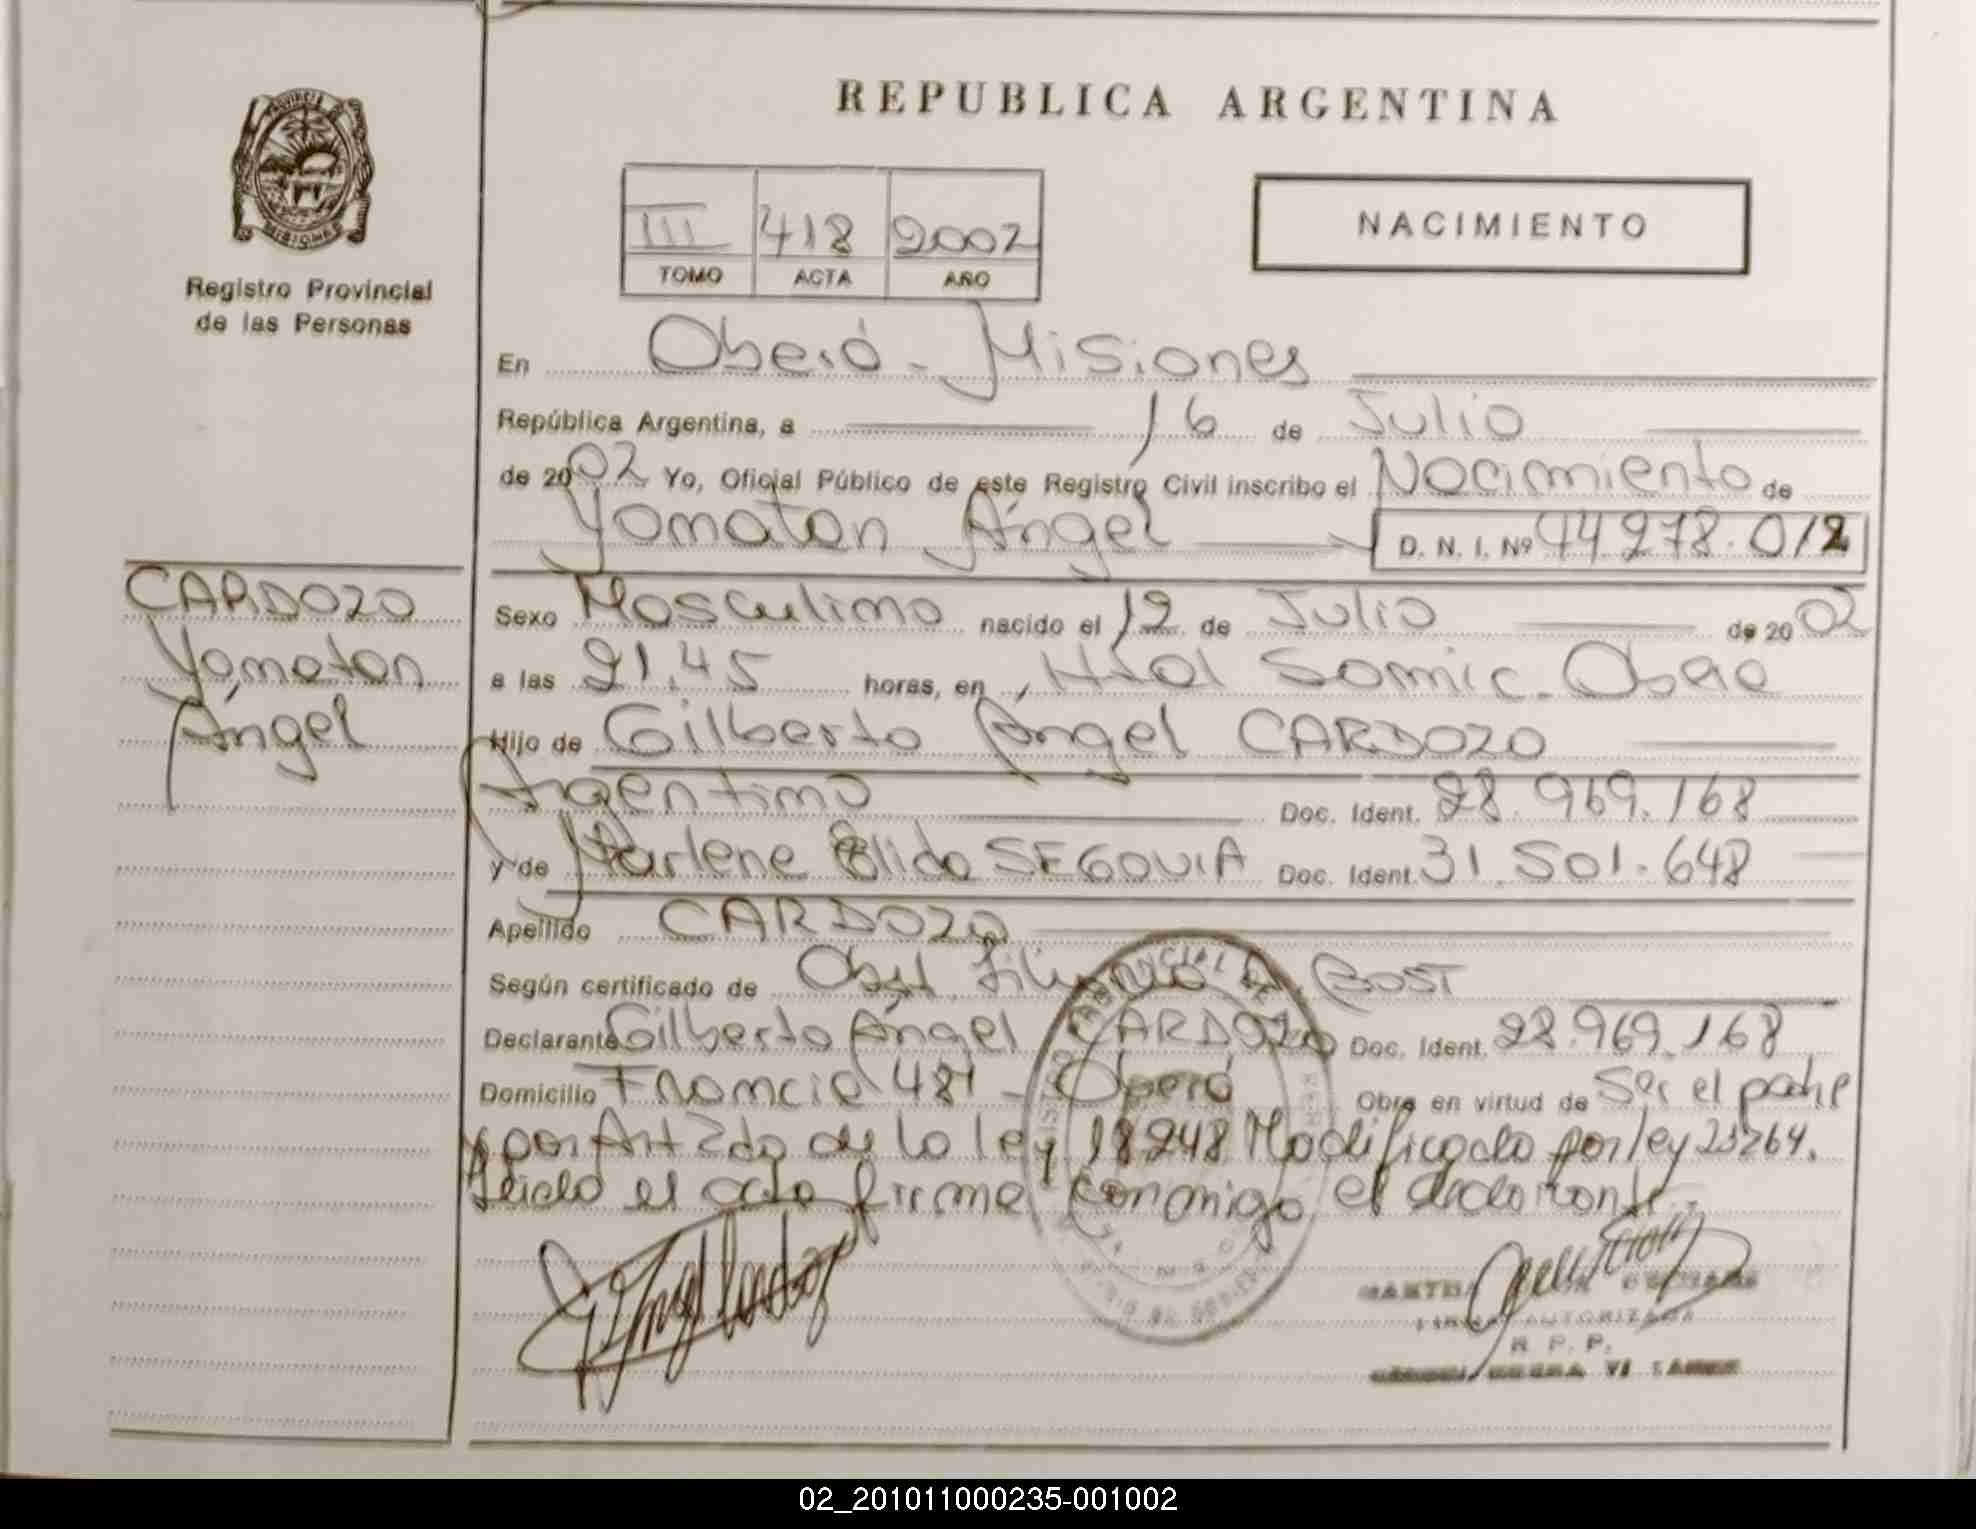 REPUBLICA ARGENTINA
PROVINCIA
MISIONES
Registro Provincial
de las Personas
III 418 2002
TOMO ACTA AÑO
NACIMIENTO
En Oberá - Misiones
República Argentina, a 16 de Julio
de 2002 Yo, Oficial Público de este Registro Civil inscribo el Nacimiento de
Yomatan Ángel D. N. I. Nº 44 278.012
CARDOZO
Yomatan
Ángel
Sexo Masculino nacido el 12 de Julio de 2002
a las 21,45 horas, en Samic - Oberá
Hijo de Gilberto Ángel CARDOZO
Argentino Doc. Ident. 28.969.168
y de Marlene Elida SEGOVIA Doc. Ident. 31.501.648
Apellido CARDOZO
Según certificado de BOST
Declarante Gilberto Ángel CARDOZO Doc. Ident. 28.969.168
Domicilio Francia 481 - Oberá Obra en virtud de Ser el padre
y por Art 2do de la ley 18248 Modificada por ley 23264.
Leida el acta firme conmigo el declarante.-
FIRMA AUTORIZADA
R. P. P.
02_201011000235-001002